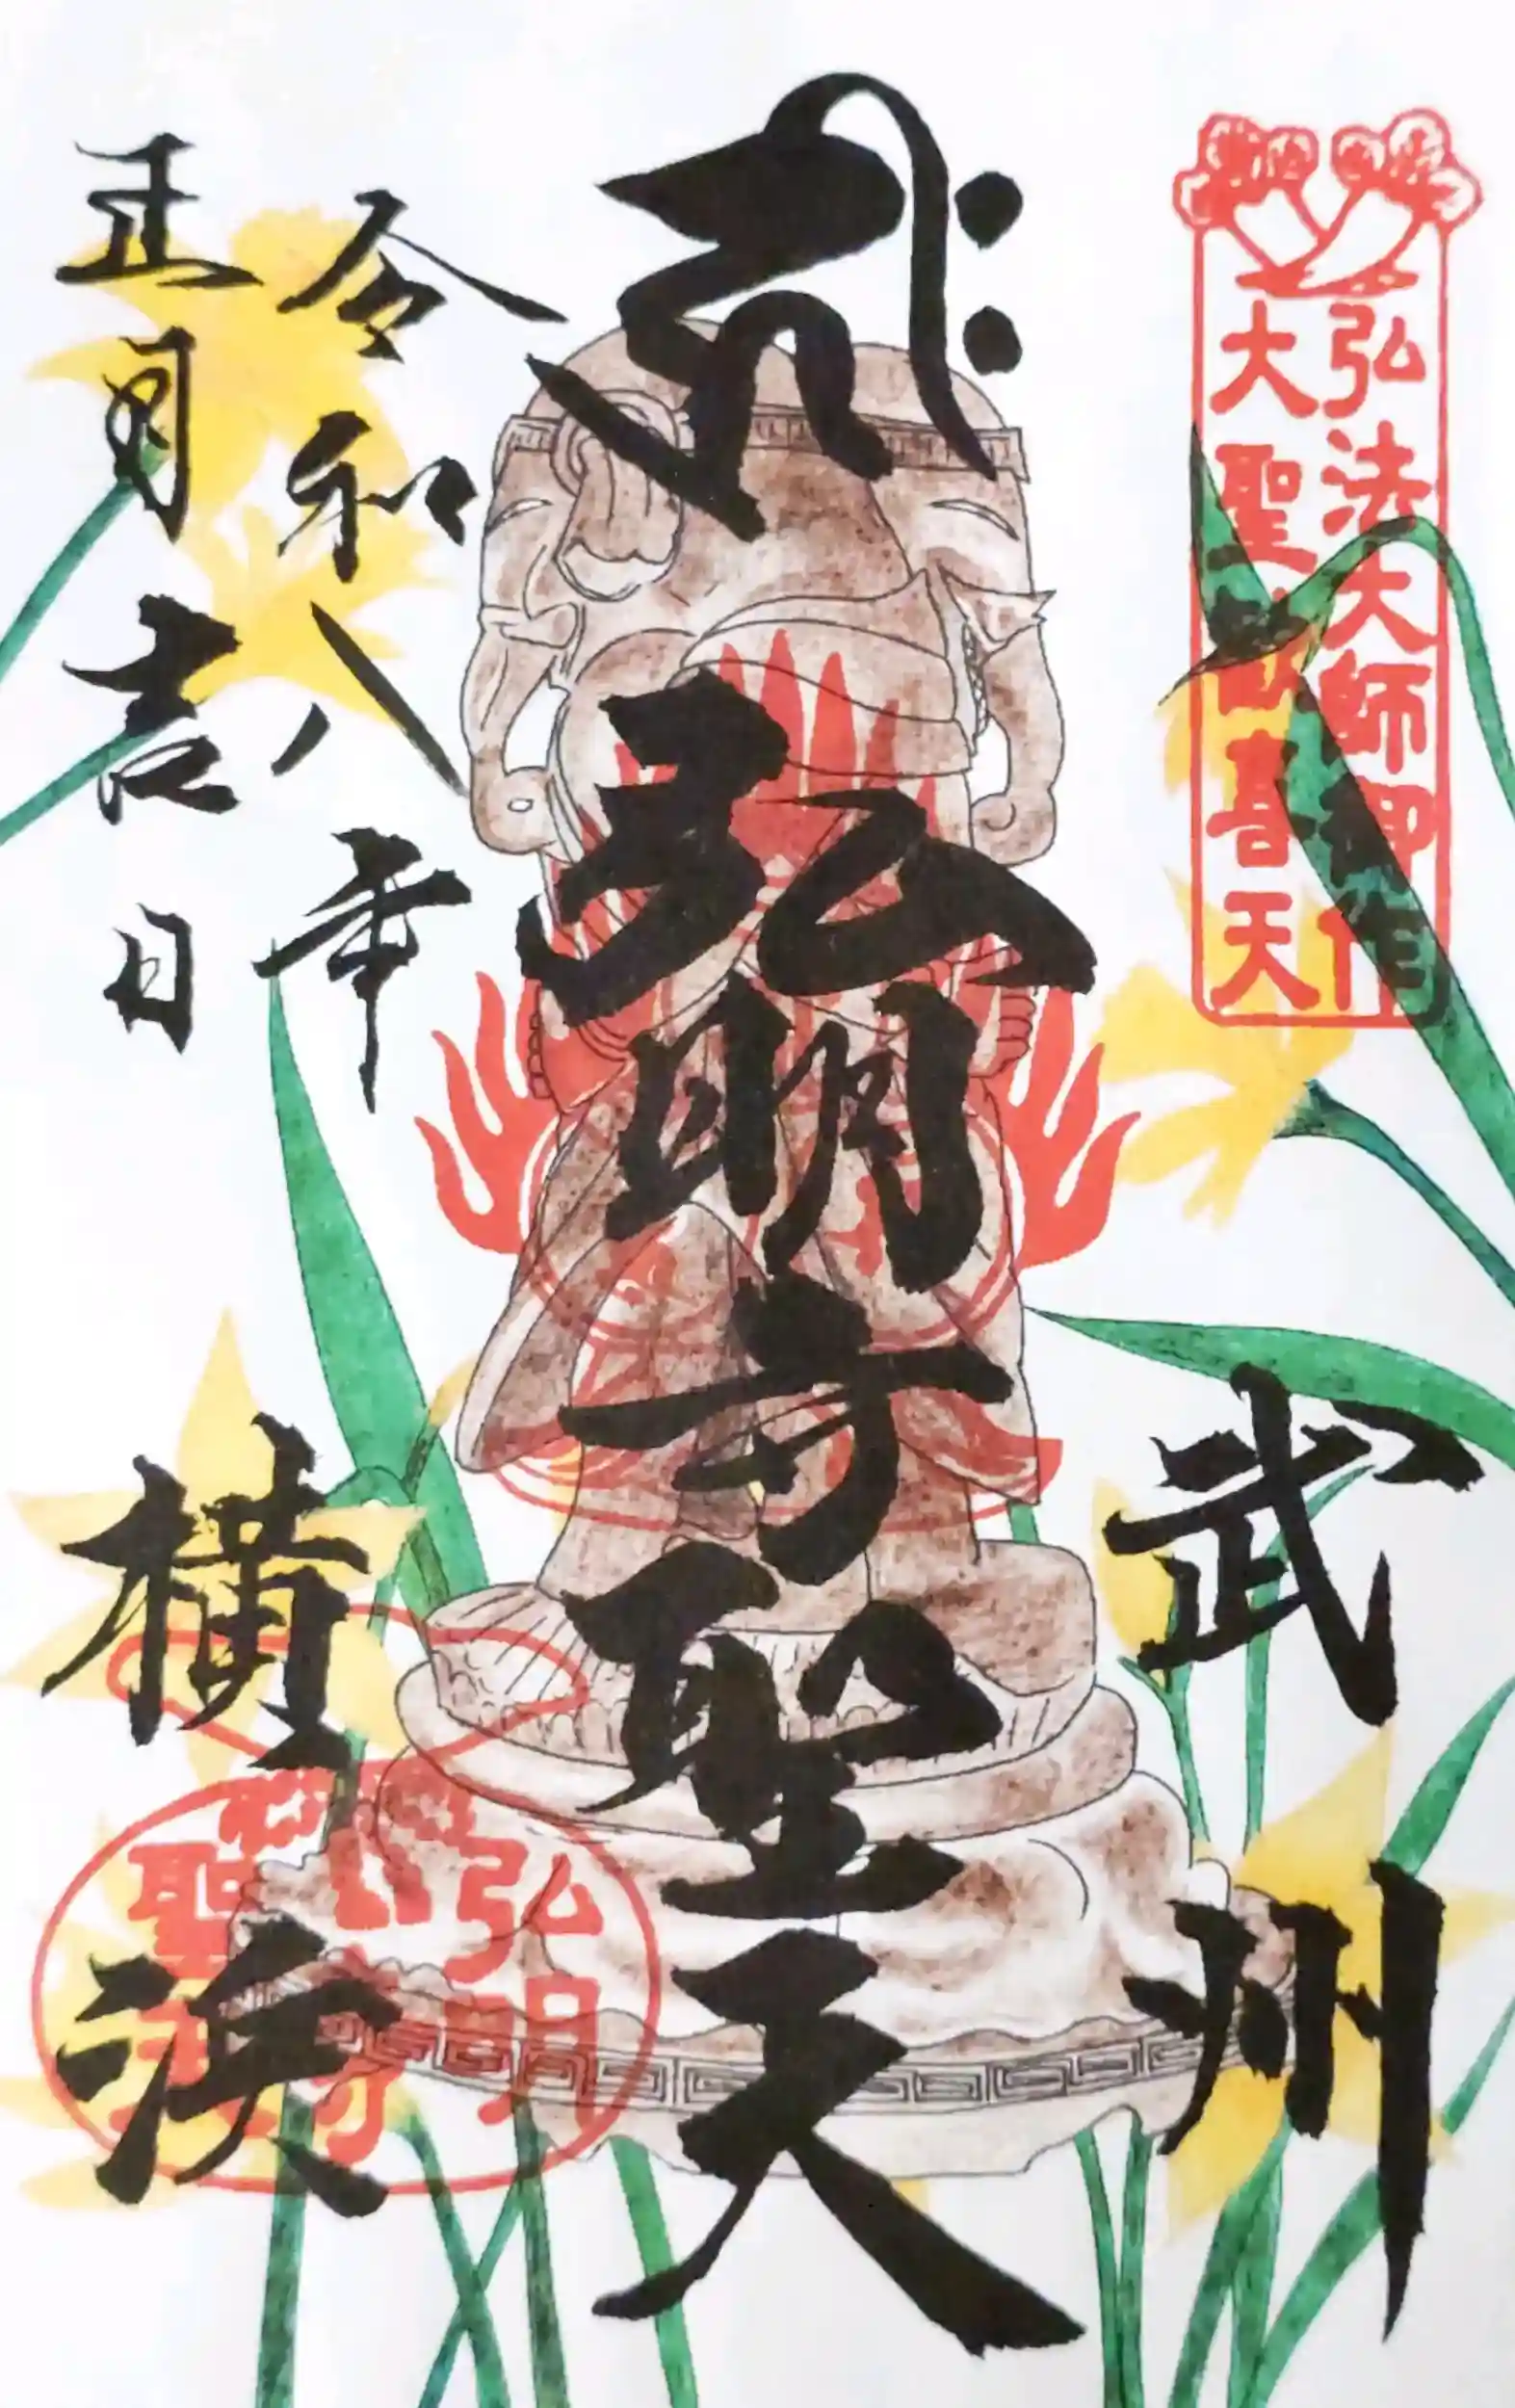 弘法大師御作
大聖歓喜天
武州
弘明寺聖天
令和八年
正月吉日
横浜
弘明寺
聖天